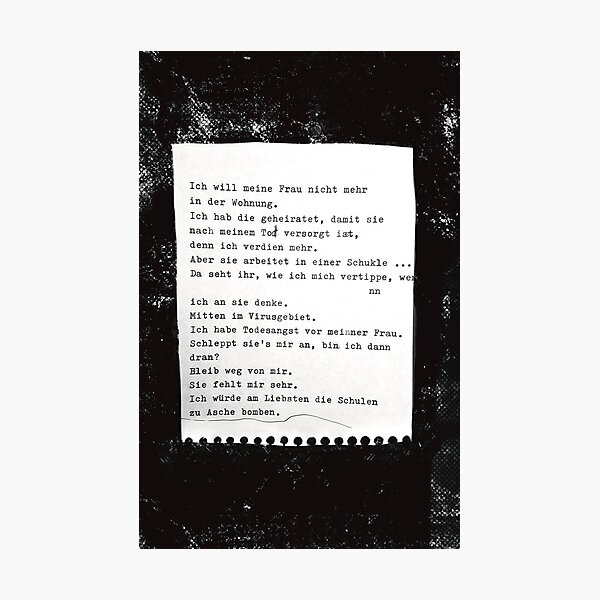 Ich will meine Frau nicht mehr
in der Wohnung.
Ich hab die geheiratet, damit sie
nach meinem Tod versorgt ist,
denn ich verdien mehr.
Aber sie arbeitet in einer Schukle ...
Da seht ihr, wie ich mich vertippe, wen
nn
ich an sie denke.
Mitten im Virusgebiet.
Ich habe Todesangst vor meinner Frau.
Schleppt sie's mir an, bin ich dann
dran?
Bleib weg von mir.
Sie fehlt mir sehr.
Ich würde am Liebsten die Schulen
zu Asche bomben.